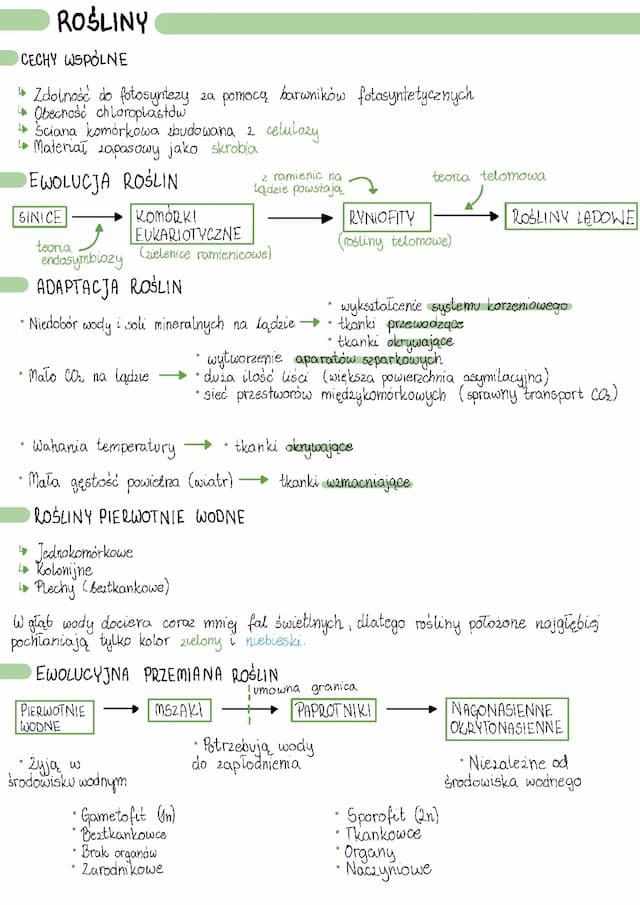 ROŚLINY
CECHY WSPÓLNE
↳ Zdolność do fotosyntezy za pomocą barwników fotosyntetycznych
↳ Obecność chloroplastów
↳ Ściana komórkowa zbudowana z celulozy
↳ Materiał zapasowy jako skrobia
EWOLUCJA ROŚLIN
SINICE
teoria
endosymbiozy
KOMÓRKI
EUKARIOTYCZNE
(zielenice ramienicowe)
z ramienic na
lądzie powstają
RYNIOFITY
(rośliny telomowe)
teoria telomowa
ROŚLINY LĄDOWE
ADAPTACJA ROŚLIN
• Niedobór wody i soli mineralnych na lądzie →
• wykształcenie systemu korzeniowego
• tkanki przewodzące
• tkanki okrywające
• Mało CO₂ na lądzie →
• wytworzenie aparatów szparkowych
• duża ilość liści (większa powierzchnia asymilacyjna)
• sieć przestworów międzykomórkowych (sprawny transport CO₂)
• Wahania temperatury → • tkanki okrywające
• Mała gęstość powietrza (wiatr) → tkanki wzmacniające
ROŚLINY PIERWOTNIE WODNE
↳ Jednokomórkowe
↳ Kolonijne
↳ Plechy (beztkankowe)
W głąb wody dociera coraz mniej fal świetlnych, dlatego rośliny położone najgłębiej
pochłaniają tylko kolor zielony i niebieski.
EWOLUCYJNA PRZEMIANA ROŚLIN
umowna granica
PIERWOTNIE
WODNE
MSZAKI
PAPROTNIKI
NAGONASIENNE
OKRYTONASIENNE
• Żyją w
środowisku wodnym
• Potrzebują wody
do zapłodnienia
• Niezależne od
środowiska wodnego
• Gametofit (1n)
• Beztkankowce
• Brak organów
• Zarodnikowe
• Sporofit (2n)
• Tkankowce
• Organy
• Naczyniowe